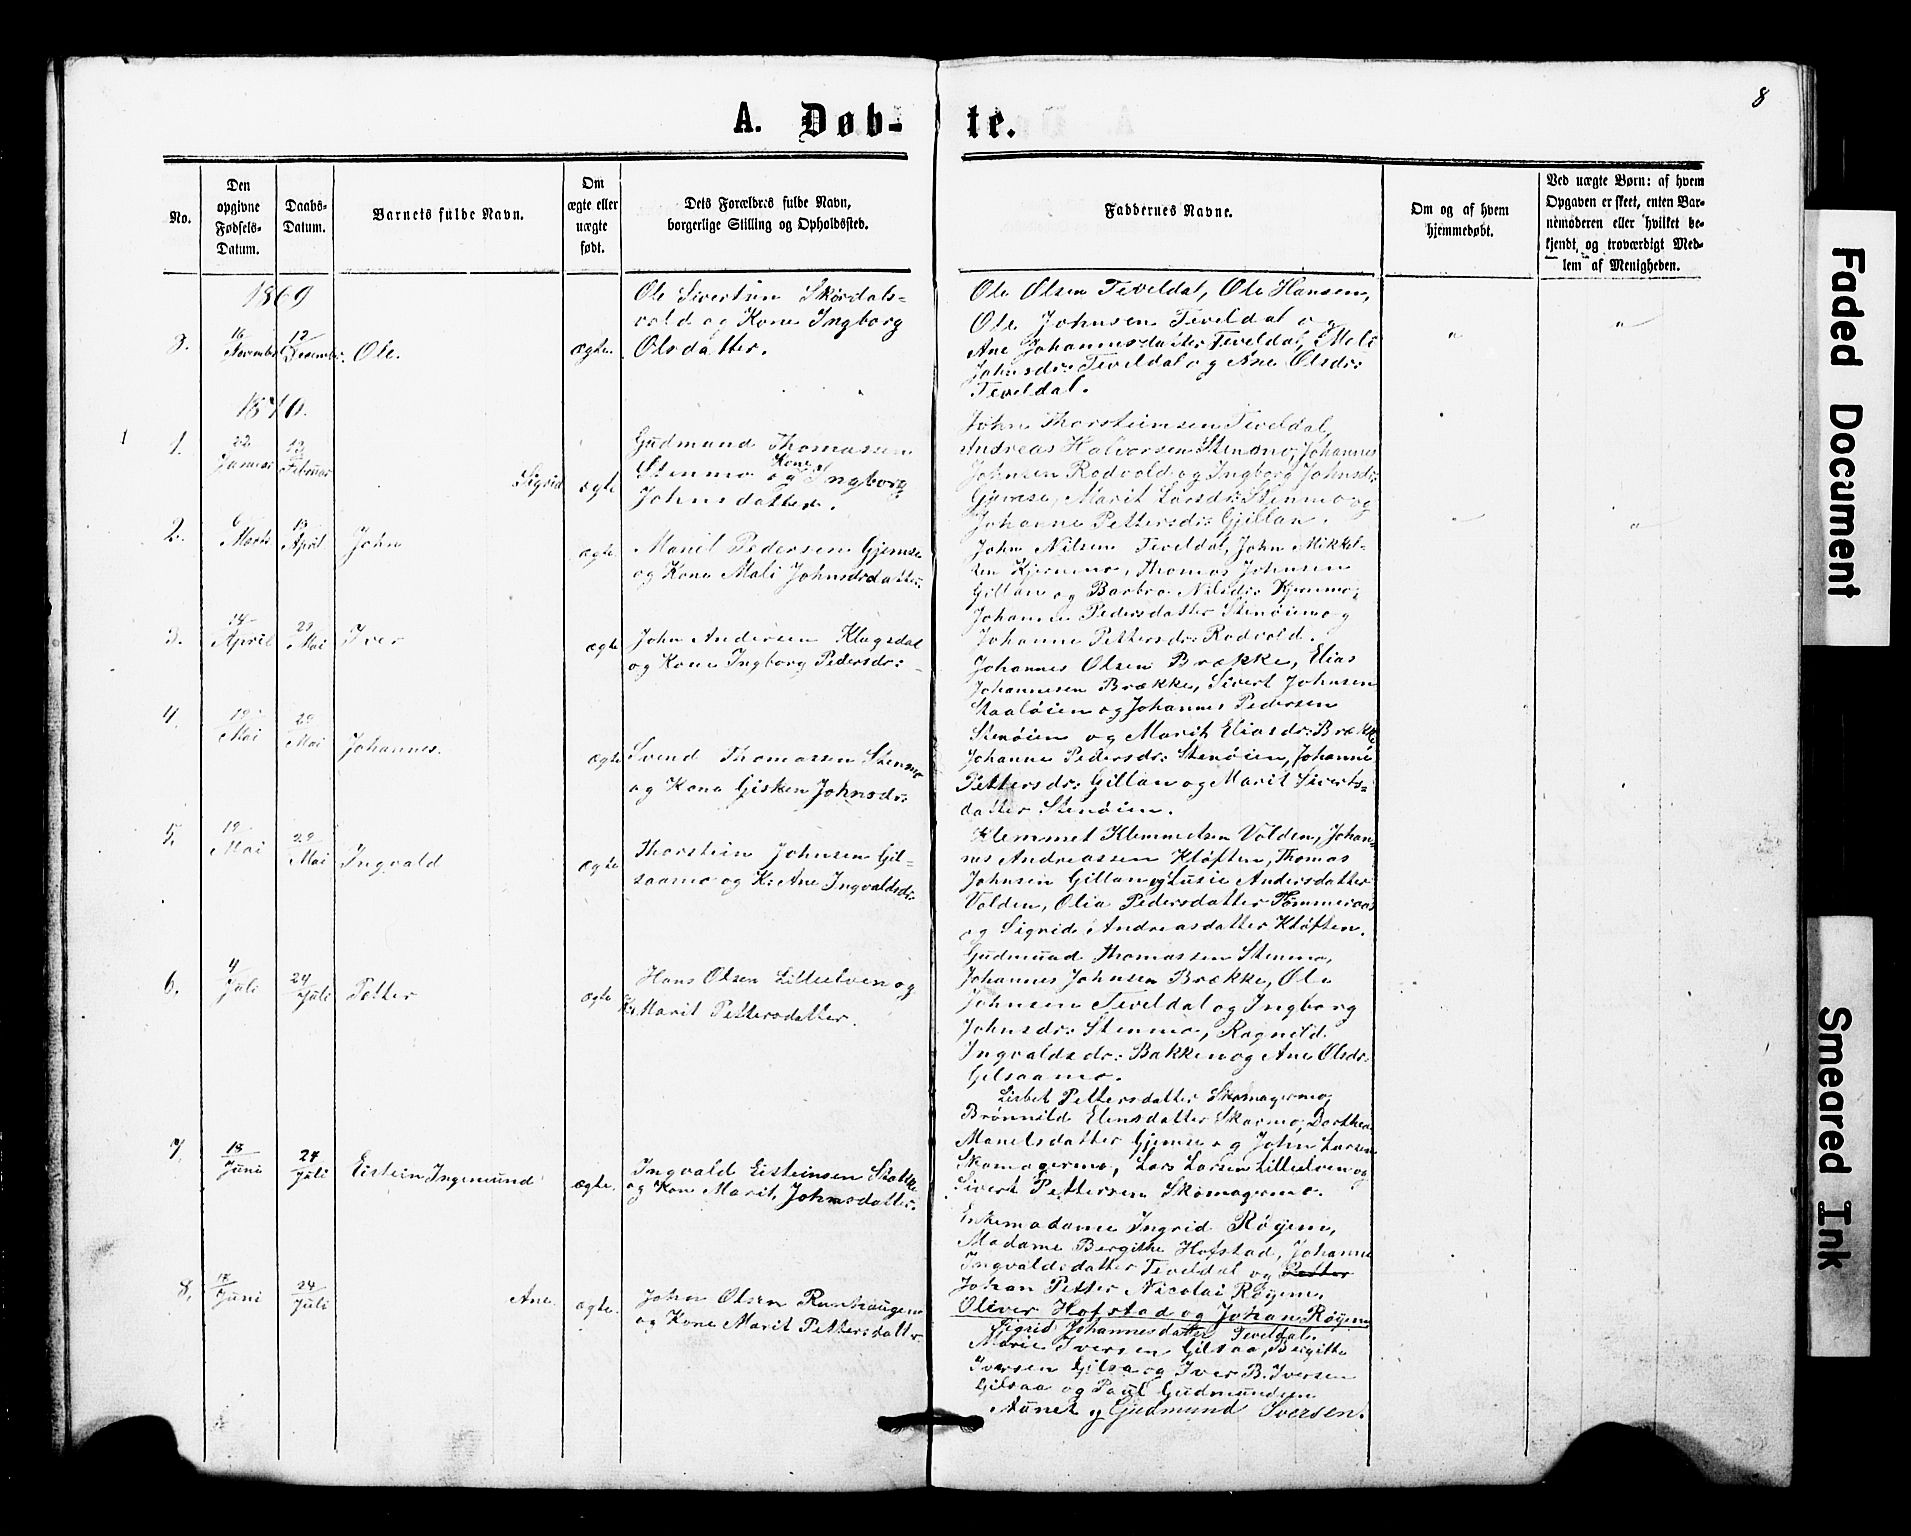 8
A. Døb- te.
No.
Den opgivne Fødsels-Datum.
Daabs-Datum.
Barnets fulde Navn.
Om ægte eller uægte født.
Dets Forældres fulde Navn, borgerlige Stilling og Opholdssted.
Faddernes Navne.
Om og af hvem hjemmedøbt.
Ved uægte Børn: af hvem Opgaven er skeet, enten Barnemoderen eller hvilket bekjendt og troværdigt Medlem af Menigheden.
1869
3. 16 Novembr 12 Desembr. Ole. ægte.
Ole Sivertsen Skordals-
vold og Kone Ingborg
Olsdatter.
Ole Olsen Teveldal, Ole Hansen,
Ole Johnsen Teveldal og
Ane Johannesdatter Teveldal, Mali
Johnsdr: Teveldal og Ane Olsdr:
Teveldal.
1870.
1 1. 22 Januar 13 Februar Sigrid ægte
Gudmund Thomassen
Stenmo og Kone Ingborg
Johnsdatter.
John Thorsteinsen Teveldal,
Andreas Halvorsen Stenmo, Johannes
Johnsen Rodvold og Ingborg Johnsdr:
Gjemse, Marit Larsdr: Stenmo og
Johanne Pettersdr: Gjillan.
2. 6 Marts 13 April John ægte
Manel Pedersen Gjemse
og Kone Mali Johnsdatter:
John Nilsen Teveldal, John Mikkel-
sen Kjernmo, Thomas Johnsen
Gillan og Barbro Nilsdr: Kjernmo,
Johanne Pedersdatter Stenøien og
Johanne Pettersdr: Rodvold.
3. 14 April 29 Mai Iver ægte
John Andersen Klugsdal
og Kone Ingborg Pedersdr:
Johannes Olsen Brække, Elias
Johannesen Brække, Sivert Johnsen
Staaløien og Johannes Pedersen
Stenøien og Marit Eliasdr: Brække
4. 19 Mai 29 Mai Johannes. ægte
Svend Thomassen Stenmo
og Kone Gisken Johnsdr:
Johanne Pedersdr: Stenøien, Johanne
Pettersdr: Gillan og Marit Siverts-
datter Stenøien.
5. 19 Mai 29 Mai Ingvald ægte
Thorstein Johnsen Gil-
saamo og K: Ane Ingvaldsdr:
Klemmet Klemmetsen Volden, Johan-
nes Andreassen Kløften, Thomas
Johnsen Gillan og Lusie Andersdatter
Volden, Olia Pedersdatter Tømmeraas
og Sigrid Andreasdatter Kløften.
6. 4 Juli 24 Juli Petter ægte
Hans Olsen Lilleelven og
K: Marit Pettersdatter.
Gudmund Thomassen Stenmo,
Johannes Johnsen Brække, Ole
Johnsen Teveldal og Ingborg
Johnsdr: Stenmo, Ragnild
Ingvaldsdr: Bakken og Ane Olsdr:
Gilsaamo.
7. 13 Juni 24 Juli Eistein Ingemund ægte.
Ingvald Eisteinsen
og Kone Marit Johnsdatter.
Lisbet Pettersdatter Skomagermo,
Brønnild Elensdatter Skarmo, Dorthea
Manelsdatter Gjemse og John Larsen
Skomagermo, Lars Larsen Lilleelven og
Sivert Pettersen Skomagermo.
8. 17 Juni 24 Juli Ane. ægte.
John Olsen Runhaugen
og Kone Marit Pettersdatter
Enkemadame Ingrid Røyem,
Madame Bergithe Hofstad, Johanne
Ingvaldsdatter Teveldal og Petter
Johan Petter Nicolai Røyem,
Oliver Hofstad og Johan Røyem
Sigrid Johannesdatter Teveldal.
Marie Iversen Gilsaa, Bergitte
Iversen Gilsa og Iver B. Iversen
Gilsaa og Paul Gudmundsen
Aunet og Gudmund Iversen.
Faded Document
Smeared Ink